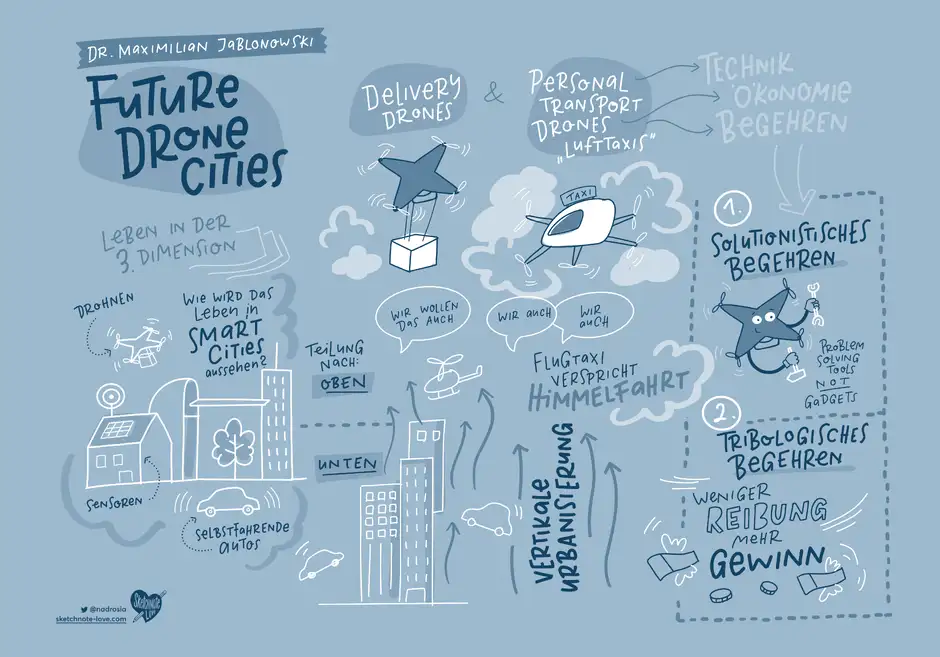 Dr. Maximilian Jablonowski
Future
Drone
Cities
Delivery
Drones
&
Personal
Transport
Drones
„Lufttaxis“
Technik
Ökonomie
Begehren
Leben in der
3. Dimension
Drohnen
Wie wird das
Leben in
Smart
Cities
aussehen?
Sensoren
Selbstfahrende
Autos
TAXI
Wir wollen
das auch
Wir auch
Wir
auch
Teilung
nach:
oben
unten
Flugtaxi
verspricht
Himmelfahrt
Vertikale
Urbanisierung
1.
Solutionistisches
Begehren
Problem
solving
tools
not
gadgets
2.
Tribologisches
Begehren
Weniger
Reibung
mehr
Gewinn
@nadrosia
sketchnote-love.com
Sketchnote
Love